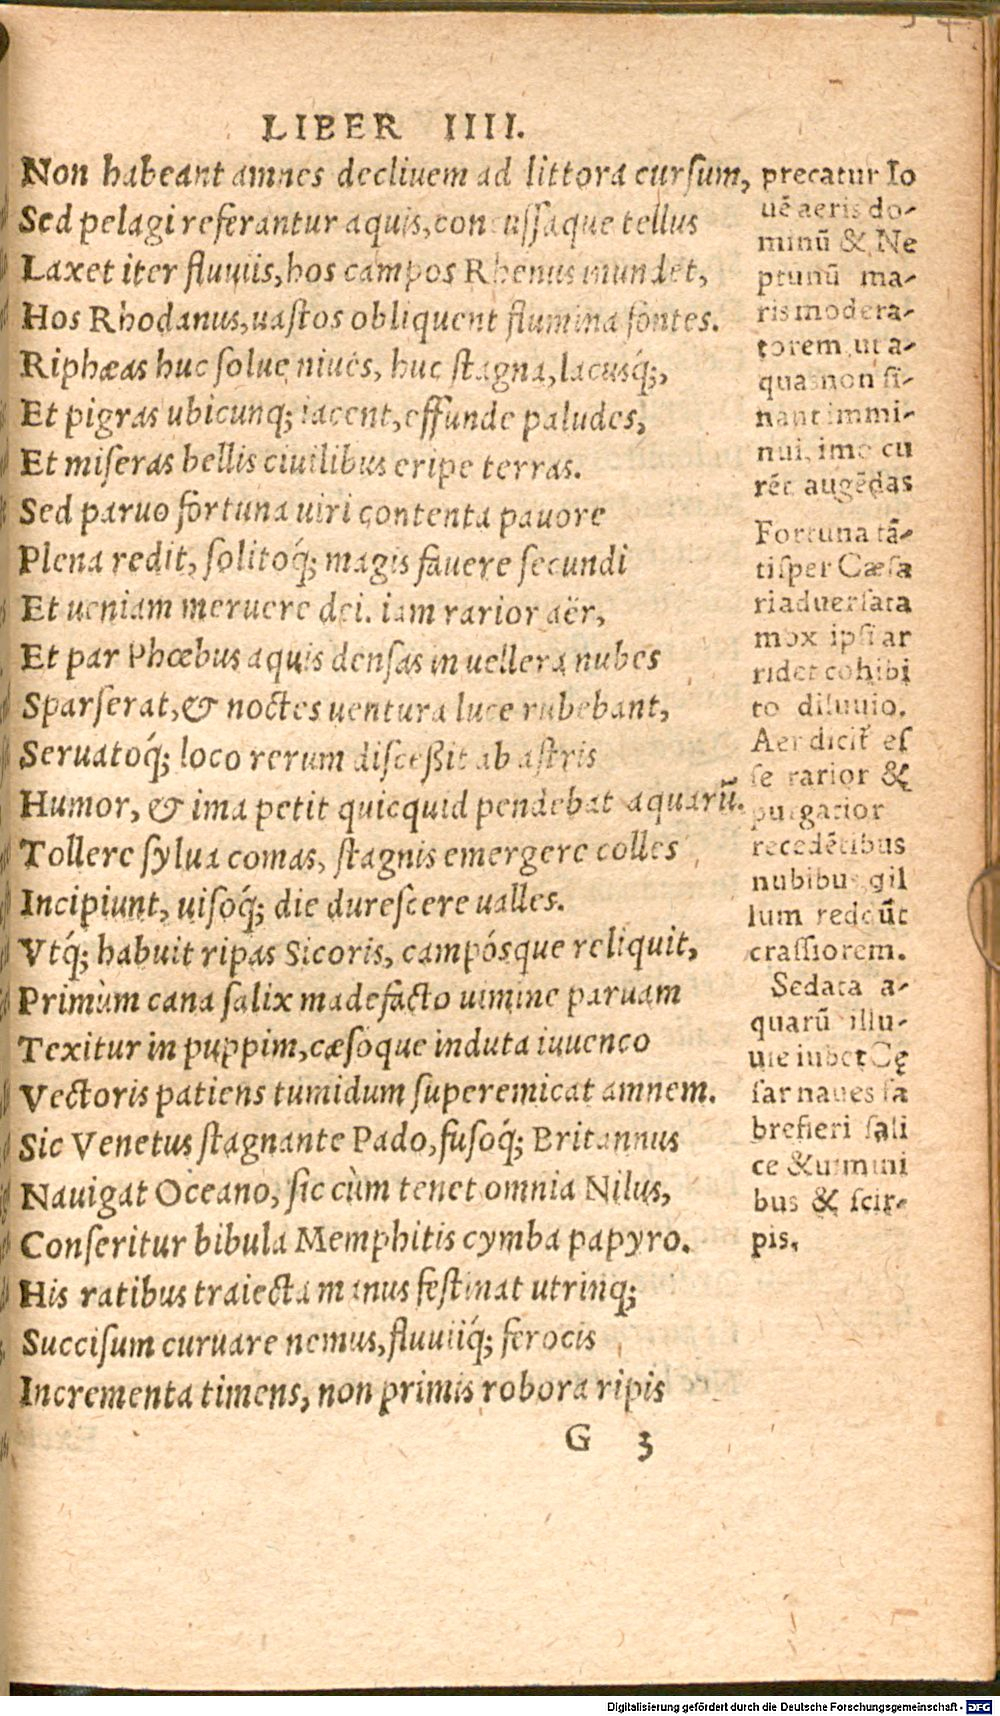 LIBER IIII.
Non habeant amnes decliuem ad littora cursum,
Sed pelagi referantur aquis, concussaque tellus
Laxet iter fluuiis, hos campos Rhenus inundet,
Hos Rhodanus, uastos obliquent flumina fontes.
Riphæas huc solue niues, huc stagna, lacusq́;,
Et pigras ubicunq; iacent, effunde paludes,
Et miseras bellis ciuilibus eripe terras.
Sed paruo fortuna uiri contenta pauore
Plena redit, solitoq́; magis fauere secundi
Et ueniam meruere dei. iam rarior aër,
Et par Phœbus aquis densas in uellera nubes
Sparserat, & noctes uentura luce rubebant,
Seruatoq́; loco rerum disceßit ab astris
Humor, & ima petit quicquid pendebat aquarū.
Tollere sylua comas, stagnis emergere colles
Incipiunt, uisoq́; die durescere ualles.
Vtq́; habuit ripas Sicoris, campósque reliquit,
Primùm cana salix madefacto uimine paruam
Texitur in puppim, cæsoque induta iuuenco
Vectoris patiens tumidum superemicat amnem.
Sic Venetus stagnante Pado, fusoq́; Britannus
Nauigat Oceano, sic cùm tenet omnia Nilus,
Conseritur bibula Memphitis cymba papyro.
His ratibus traiecta manus festinat utrinq;
Succisum curuare nemus, fluuiiq́; ferocis
Incrementa timens, non primis robora ripis
G 3
precatur Io
uē aeris do-
minū & Ne
ptunū ma-
ris modera-
torem, ut a-
quas non si-
nant immi-
nui, imo cu
rēt augēdas
Fortuna tā-
tisper Cæsa
ri aduersata
mox ipsi ar
ridet cohibi
to diluuio.
Aer dicit es
se rarior &
purgatior
recedētibus
nubibus, qil
lum reddūt
crassiorem.
Sedata a-
quarū illu-
uie iubet Cę
sar naues fa
brefieri sali
ce & uimini
bus & scir-
pis.
Digitalisierung gefördert durch die Deutsche Forschungsgemeinschaft - DFG